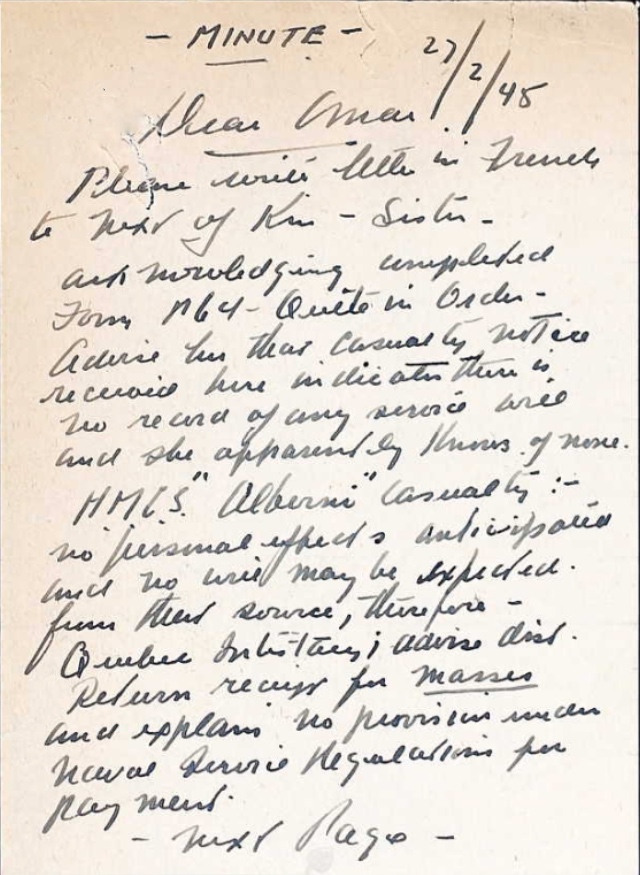 - MINUTE -
27/2/45
Dear Omar!
Please write letter in French
to Next of Kin - Sister -
acknowledging completed
Form P64 - Quite in Order -
Advise her that casualty notice
received here indicates there is
no record of any service will
and she apparently knows of none.
HMCS "Alberni" casualty :-
no personal effects anticipated
and no will may be expected.
from that source, therefore -
Quebec Intestacy; advise dist.
Return receipt for masses
and explain no provision under
Naval Service Regulations for
payment.
- Next Page -